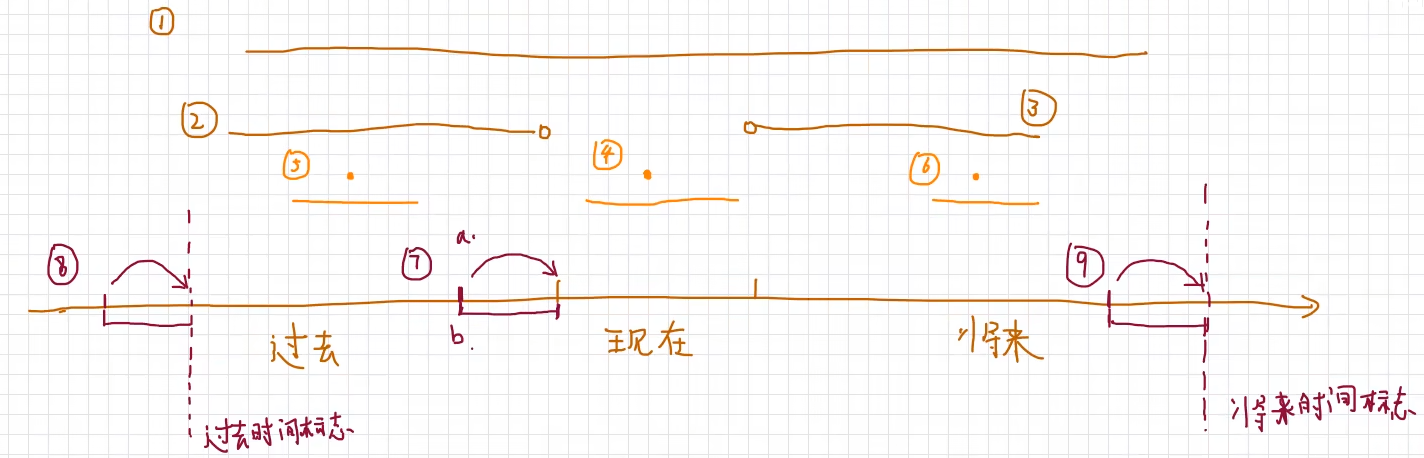 ①
② ③
⑤ ④ ⑥
⑧ ⑦ a. ⑨
b.
过去 现在 将来
过去时间标志 将来时间标志